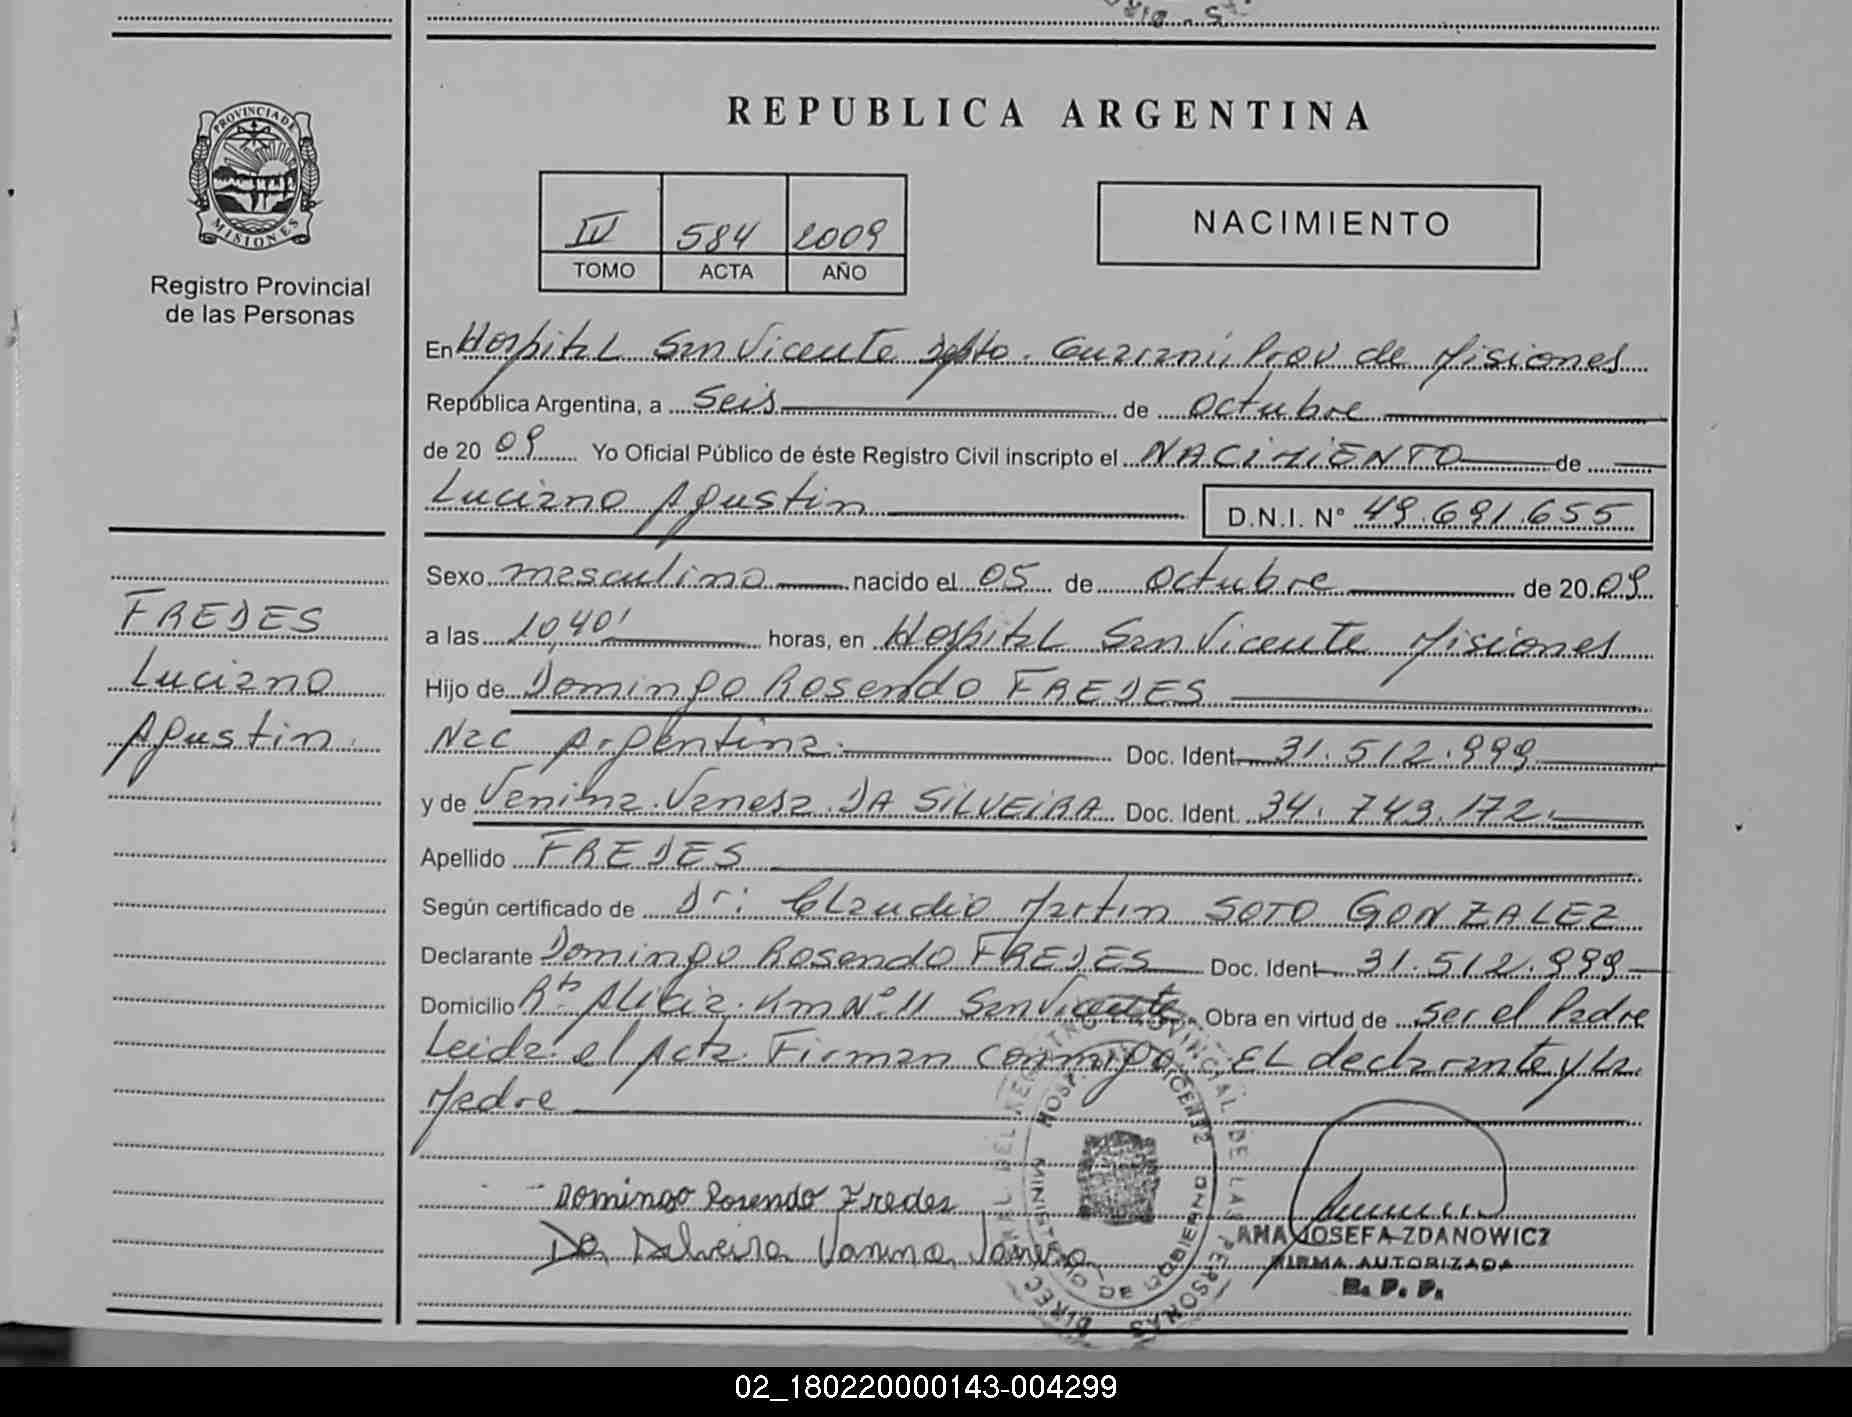 PROVINCIA DE
MISIONES
Registro Provincial
de las Personas
REPUBLICA ARGENTINA
IV 584 2009
TOMO ACTA AÑO
NACIMIENTO
En Hospital San Vicente Dpto. Guaraní, Prov de Misiones
República Argentina, a Seis de octubre
de 20 09 Yo Oficial Público de éste Registro Civil inscripto el NACIMIENTO de
Luciano Agustin D.N.I. N° 49.691.655
Sexo masculino nacido el 05 de octubre de 20 09
a las 10,40' horas, en Hospital San Vicente Misiones
Hijo de Domingo Rosendo FREDES
Nac Argentina. Doc. Ident 31.512.999
y de Vanina Vanesa DA SILVEIRA Doc. Ident. 34.743.172.
Apellido FREDES
Según certificado de Dr: Claudio Martin SOTO GONZALEZ
Declarante Domingo Rosendo FREDES Doc. Ident 31.512.999
Domicilio Bº Alicia Km Nº 11 San Vicente. Obra en virtud de Ser el Padre
Leida el Acta Firman conmigo EL declarante y la
Madre
FREDES
Luciano
Agustin.
Domingo Rosendo Fredes
Da Silveira Vanina Vanesa
HOSP. SAN VICENTE
MINISTERIO DE GOBIERNO
DIREC. GRAL DEL REGISTRO PROVINCIAL DE LAS PERSONAS
ANA JOSEFA ZDANOWICZ
FIRMA AUTORIZADA
R. P. P.
02_180220000143-004299